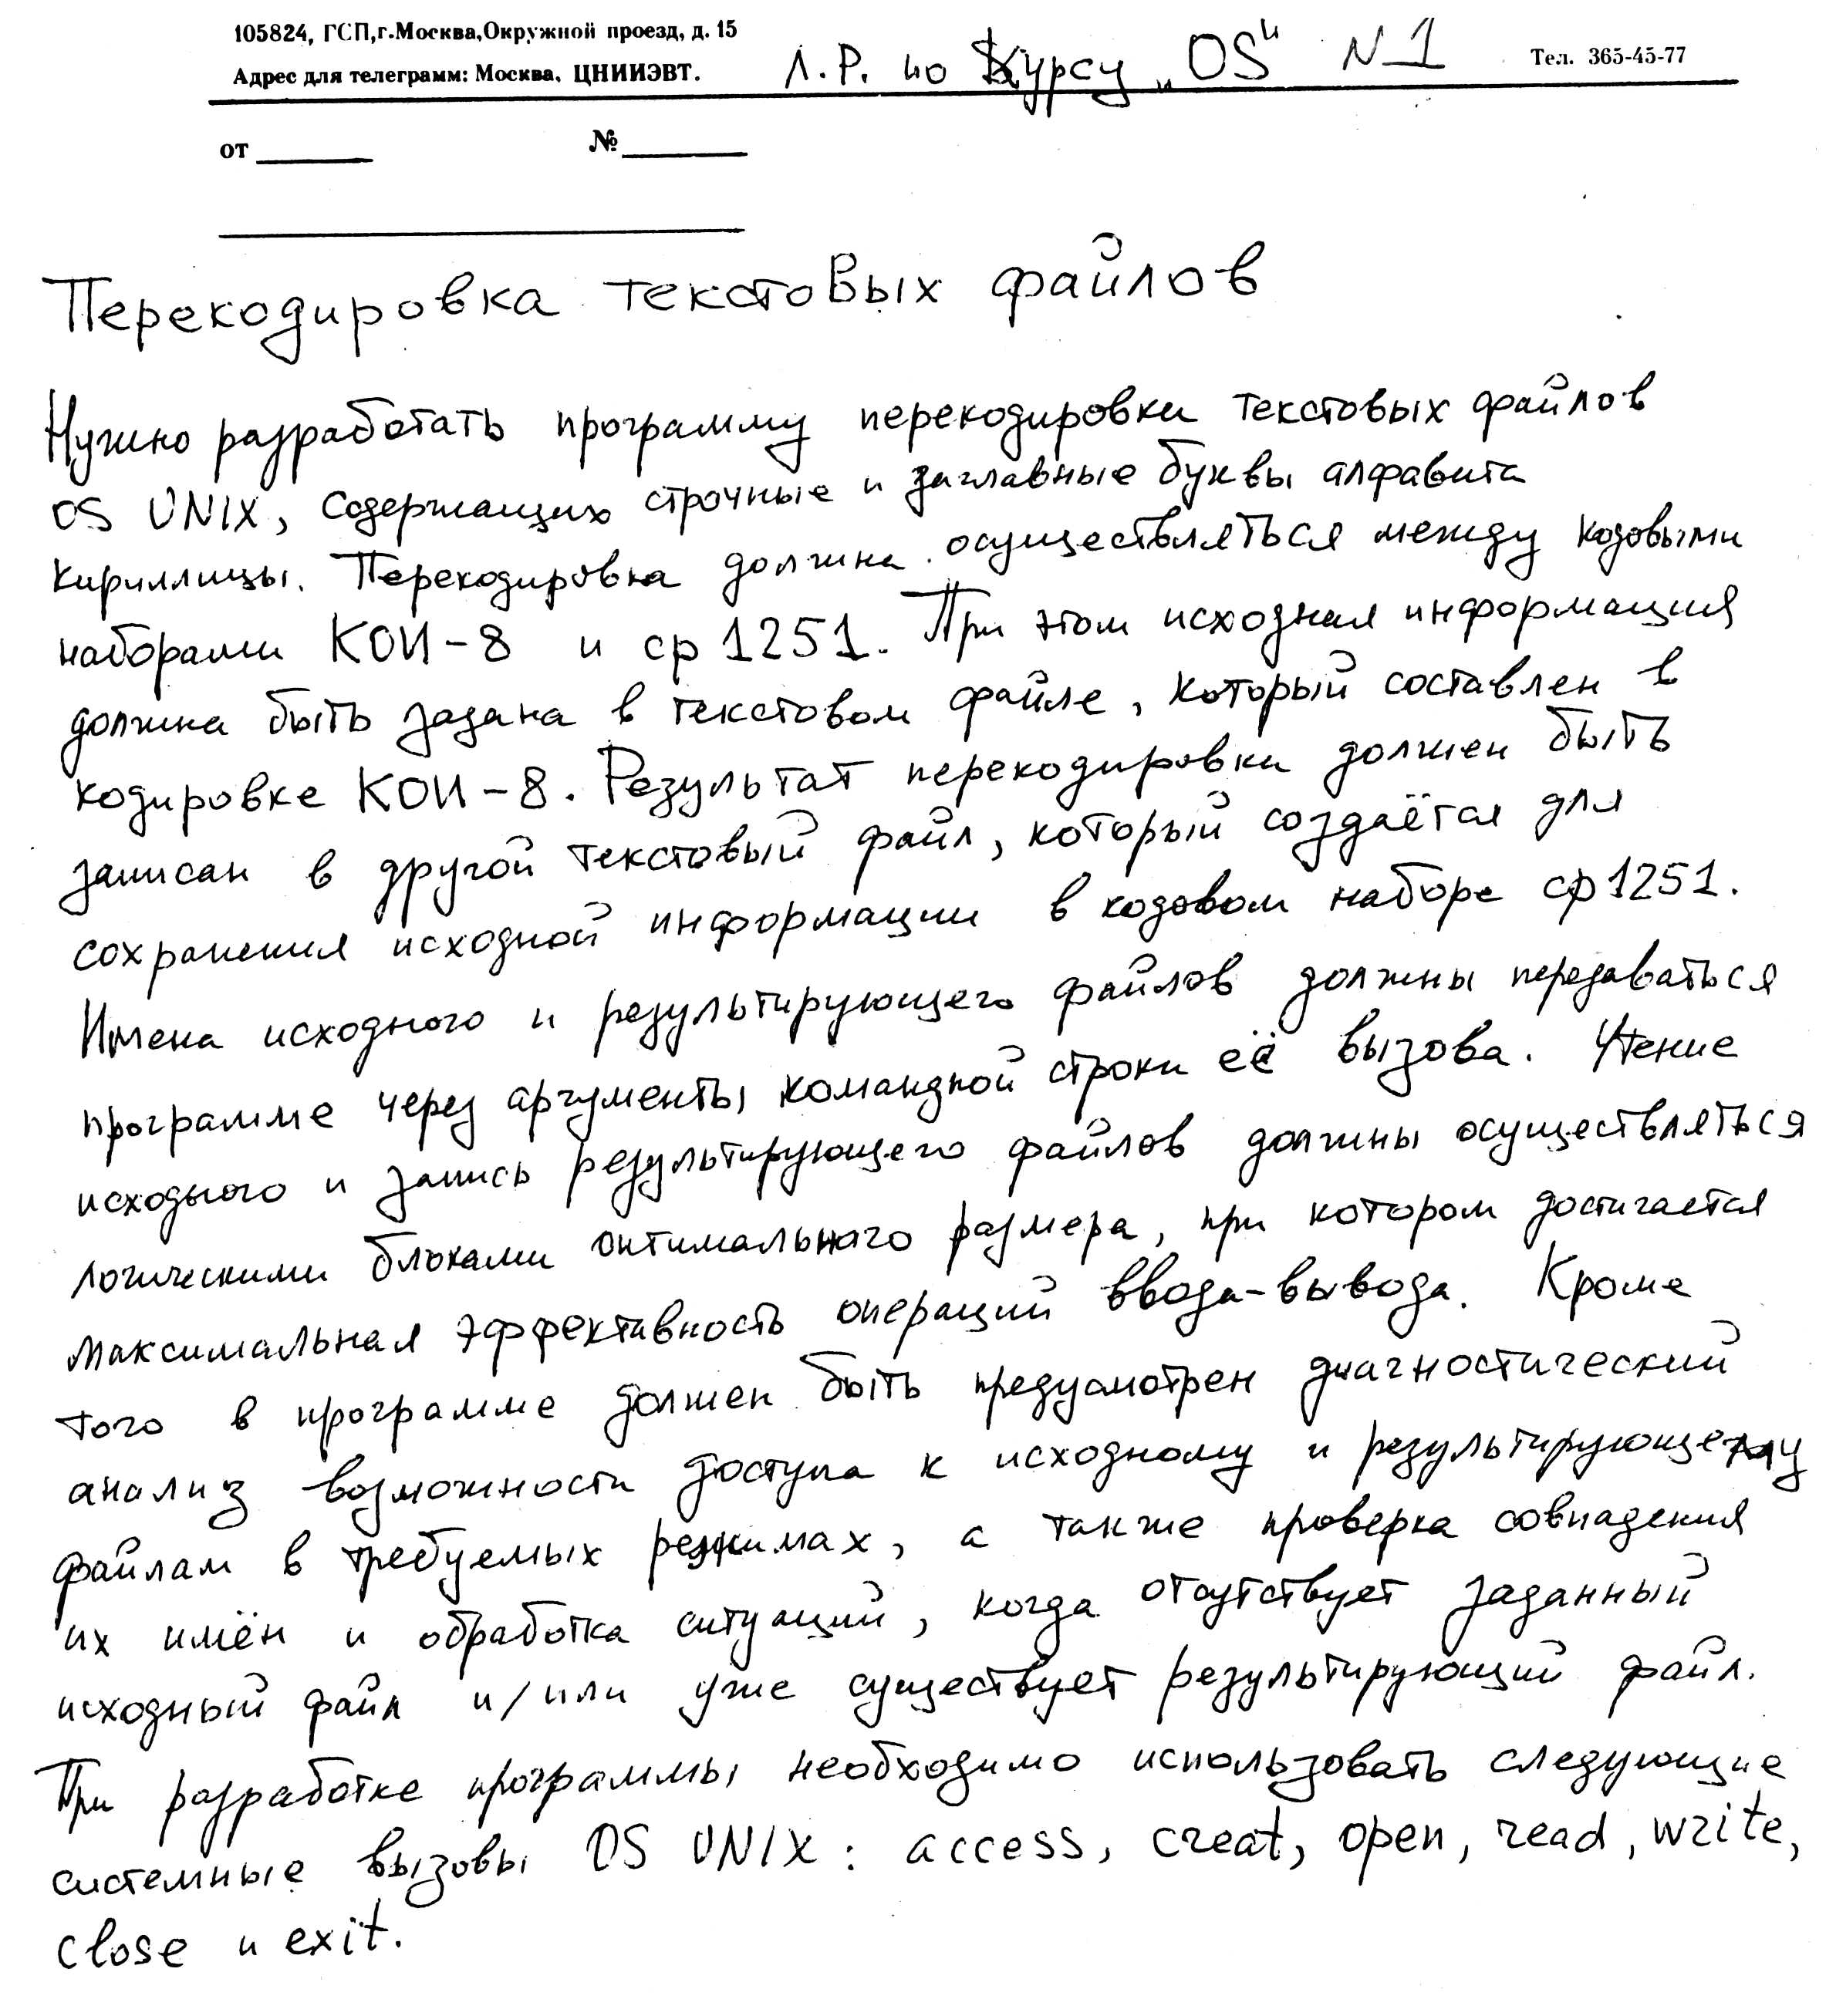 105824, ГСП,г.Москва,Окружной проезд, д. 15
Адрес для телеграмм: Москва, ЦНИИЭВТ.
Л.Р. по Курсу „OS" N 1
Тел. 365-45-77
от № 
Перекодировка текстовых файлов
Нужно разработать программу перекодировки текстовых файлов
OS UNIX, содержащих строчные и заглавные буквы алфавита
кириллицы. Перекодировка должна осуществляться между кодовыми
наборами КОИ-8 и cp 1251. При этом исходная информация
должна быть задана в текстовом файле, который составлен в
кодировке КОИ-8. Результат перекодировки должен быть
записан в другой текстовый файл, который создаётся для
сохранения исходной информации в кодовом наборе cp 1251.
Имена исходного и результирующего файлов должны передаваться
программе через аргументы командной строки её вызова. Чтение
исходного и запись результирующего файлов должны осуществляться
логическими блоками оптимального размера, при котором достигается
максимальная эффективность операций ввода-вывода. Кроме
того в программе должен быть предусмотрен диагностический
анализ возможности доступа к исходному и результирующему
файлам в требуемых режимах, а также проверка совпадения
их имён и обработка ситуаций, когда отсутствует заданный
исходный файл и/или уже существует результирующий файл.
При разработке программы необходимо использовать следующие
системные вызовы OS UNIX: access, creat, open, read, write,
close и exit.